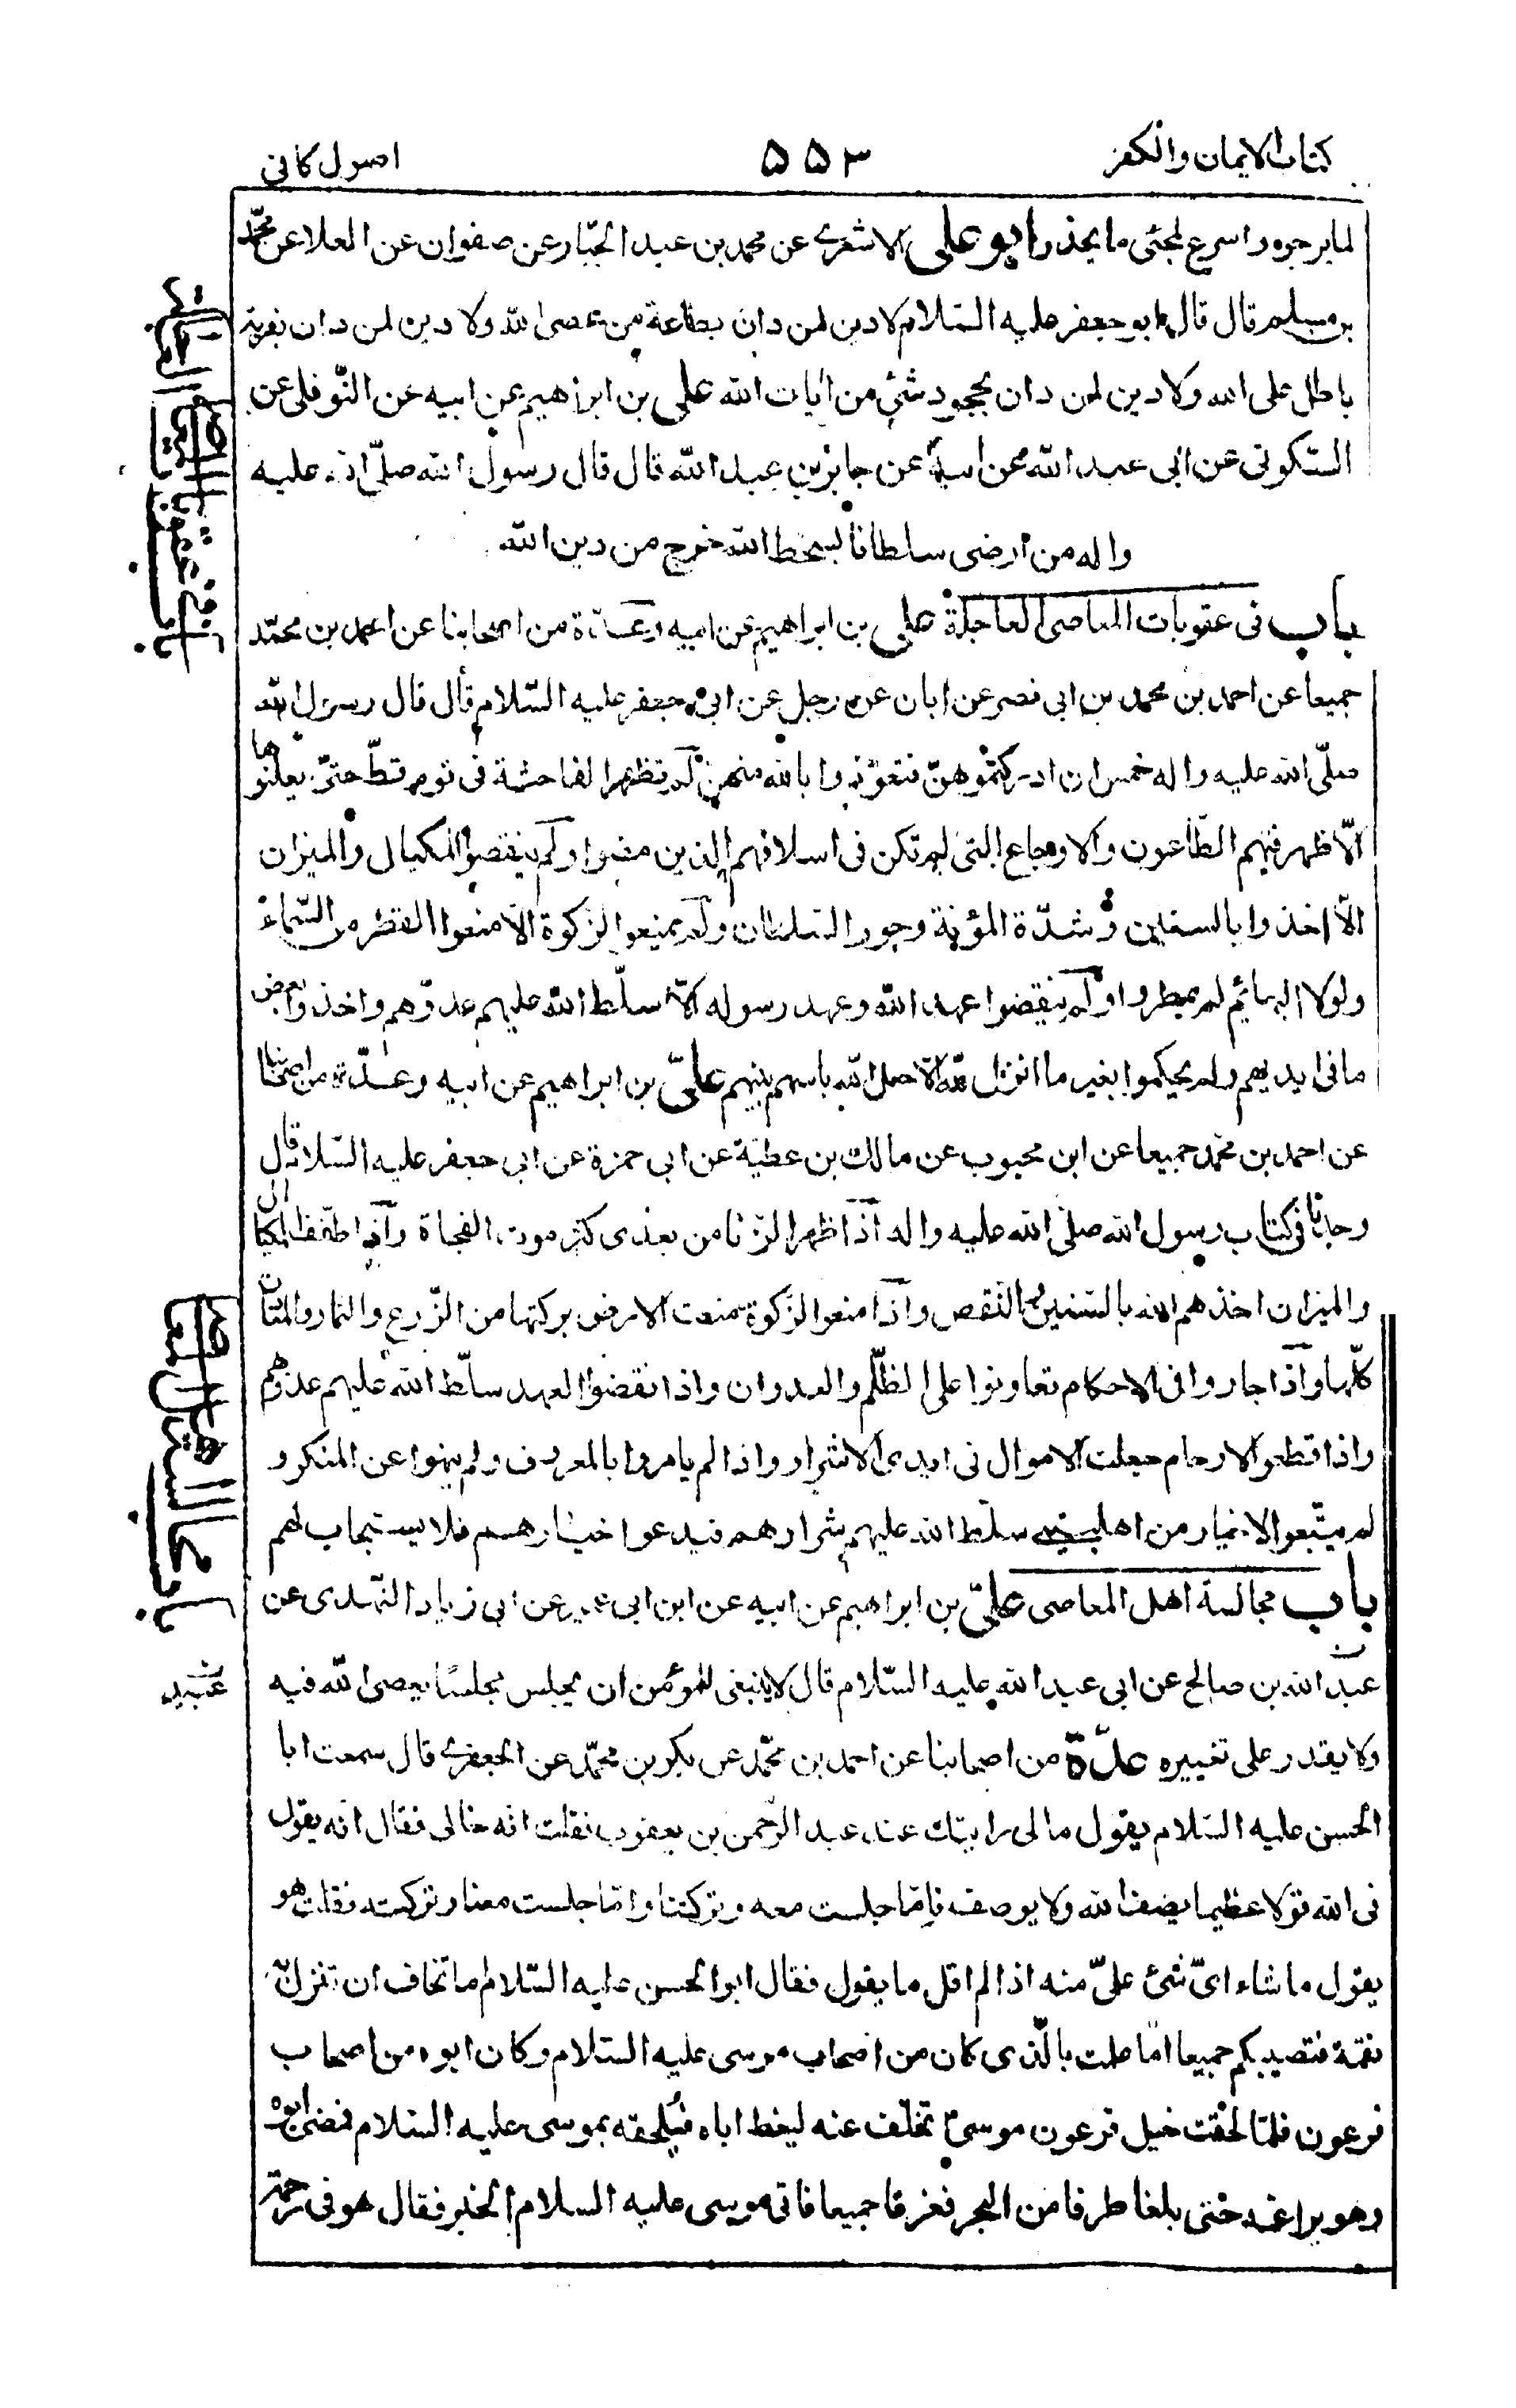 كتاب الايمان والكفر
٥٥٣
اصول كافى
لما يرجوه واسرع لمجئ ما يحذر ابو على الاشعرى عن محمد بن عبد الجبّار عن صفوان عن العلا عن محمّد
بن مسلم قال قال ابو جعفر عليه السّلام لا دين لمن دان بطاعة من عصى الله ولا دين لمن دان بفرية
باطل على الله ولا دين لمن دان بجحود شئ من ايات الله على بن ابراهيم عن ابيه عن النّوفلى عن
السّكونى عن ابى عبد الله عن ابيه عن جابر بن عبد الله قال قال رسول الله صلّى الله عليه
واله من ارضى سلطانا بسخط الله خرج من دين الله
باب فى عقوبات المعاصى العاجلة على بن ابراهيم عن ابيه وعدّة من اصحابنا عن احمد بن محمّد
جميعا عن احمد بن محمد بن ابى نصر عن ابان عن رجل عن ابى جعفر عليه السّلام قال قال رسول الله
صلّى الله عليه واله خمس ان ادركتموهنّ فتعوّذوا بالله منهنّ لم يظهر الفاحشة فى قوم قطّ حتّى يعلنوها
الّا ظهر فيهم الطّاعون والاوجاع التى لم تكن فى اسلافهم الذين مضوا ولم ينقصوا المكيال والميزان
الّا اخذوا بالسنين وشدّة المؤنة وجور السّلطان ولم يمنعوا الزكوة الّا منعوا القطر من السّماء
ولولا البهائم لم يمطروا ولم ينقضوا عهد الله وعهد رسوله الّا سلّط الله عليهم عدوّهم واخذوا بعض
ما فى ايديهم ولم يحكموا بغير ما انزل الله الّا جعل الله باسهم بينهم علىّ بن ابراهيم عن ابيه وعدّة من اصحابنا
عن احمد بن محمّد جميعا عن ابن محبوب عن مالك بن عطيّة عن ابى حمزة عن ابى جعفر عليه السّلام قال
وجدنا فى كتاب رسول الله صلّى الله عليه واله اذا ظهر الزّنا من بعدى كثر موت الفجاة واذا طفّف المكيال
والميزان اخذهم الله بالسّنين والنّقص واذا منعوا الزكوة منعت الارض بركتها من الزّرع والثمار والمعادن
كلّها واذا جاروا فى الاحكام تعاونوا على الظّلم والعدوان واذا نقضوا العهد سلّط الله عليهم عدوّهم
واذا قطعوا الارحام جعلت الاموال فى ايدى الاشرار واذا لم يامروا بالمعروف ولم ينهوا عن المنكر و
لم يتّبعوا الاخيار من اهل بيتى سلّط الله عليهم شرارهم فيدعوا خيارهم فلا يستجاب لهم
باب مجالسة اهل المعاصى علىّ بن ابراهيم عن ابيه عن ابن ابى عمير عن ابى زياد النّهدى عن
عبد الله بن صالح عن ابى عبد الله عليه السّلام قال لا ينبغى للمؤمن ان يجلس مجلسًا يعصى الله فيه
ولا يقدر على تغييره عدّة من اصحابنا عن احمد بن محمّد عن بكر بن محمّد عن الجعفرى قال سمعت ابا
الحسن عليه السّلام يقول ما لى رايتك عند عبد الرّحمن بن يعقوب فقلت انّه خالى فقال انّه يقول
فى الله قولا عظيما يصف الله ولا يوصف فامّا جلست معه وتركتنا وامّا جلست معنا وتركته فقلت هو
يقول ما شاء اىّ شئ علىّ منه اذا لم اقل ما يقول فقال ابو الحسن عليه السّلام ما تخاف ان تنزل به
نقمة فتصيبكم جميعا اما علمت بالّذى كان من اصحاب موسى عليه السّلام وكان ابوه من اصحاب
فرعون فلمّا لحقت خيل فرعون موسى تخلّف عنه ليعظ اباه فيلحقه بموسى عليه السلام فمضى ابوه
وهو يراغمه حتى بلغا طرفا من البحر فغرقا جميعا فاتى موسى عليه السلام الخبر فقال هو فى رحمة